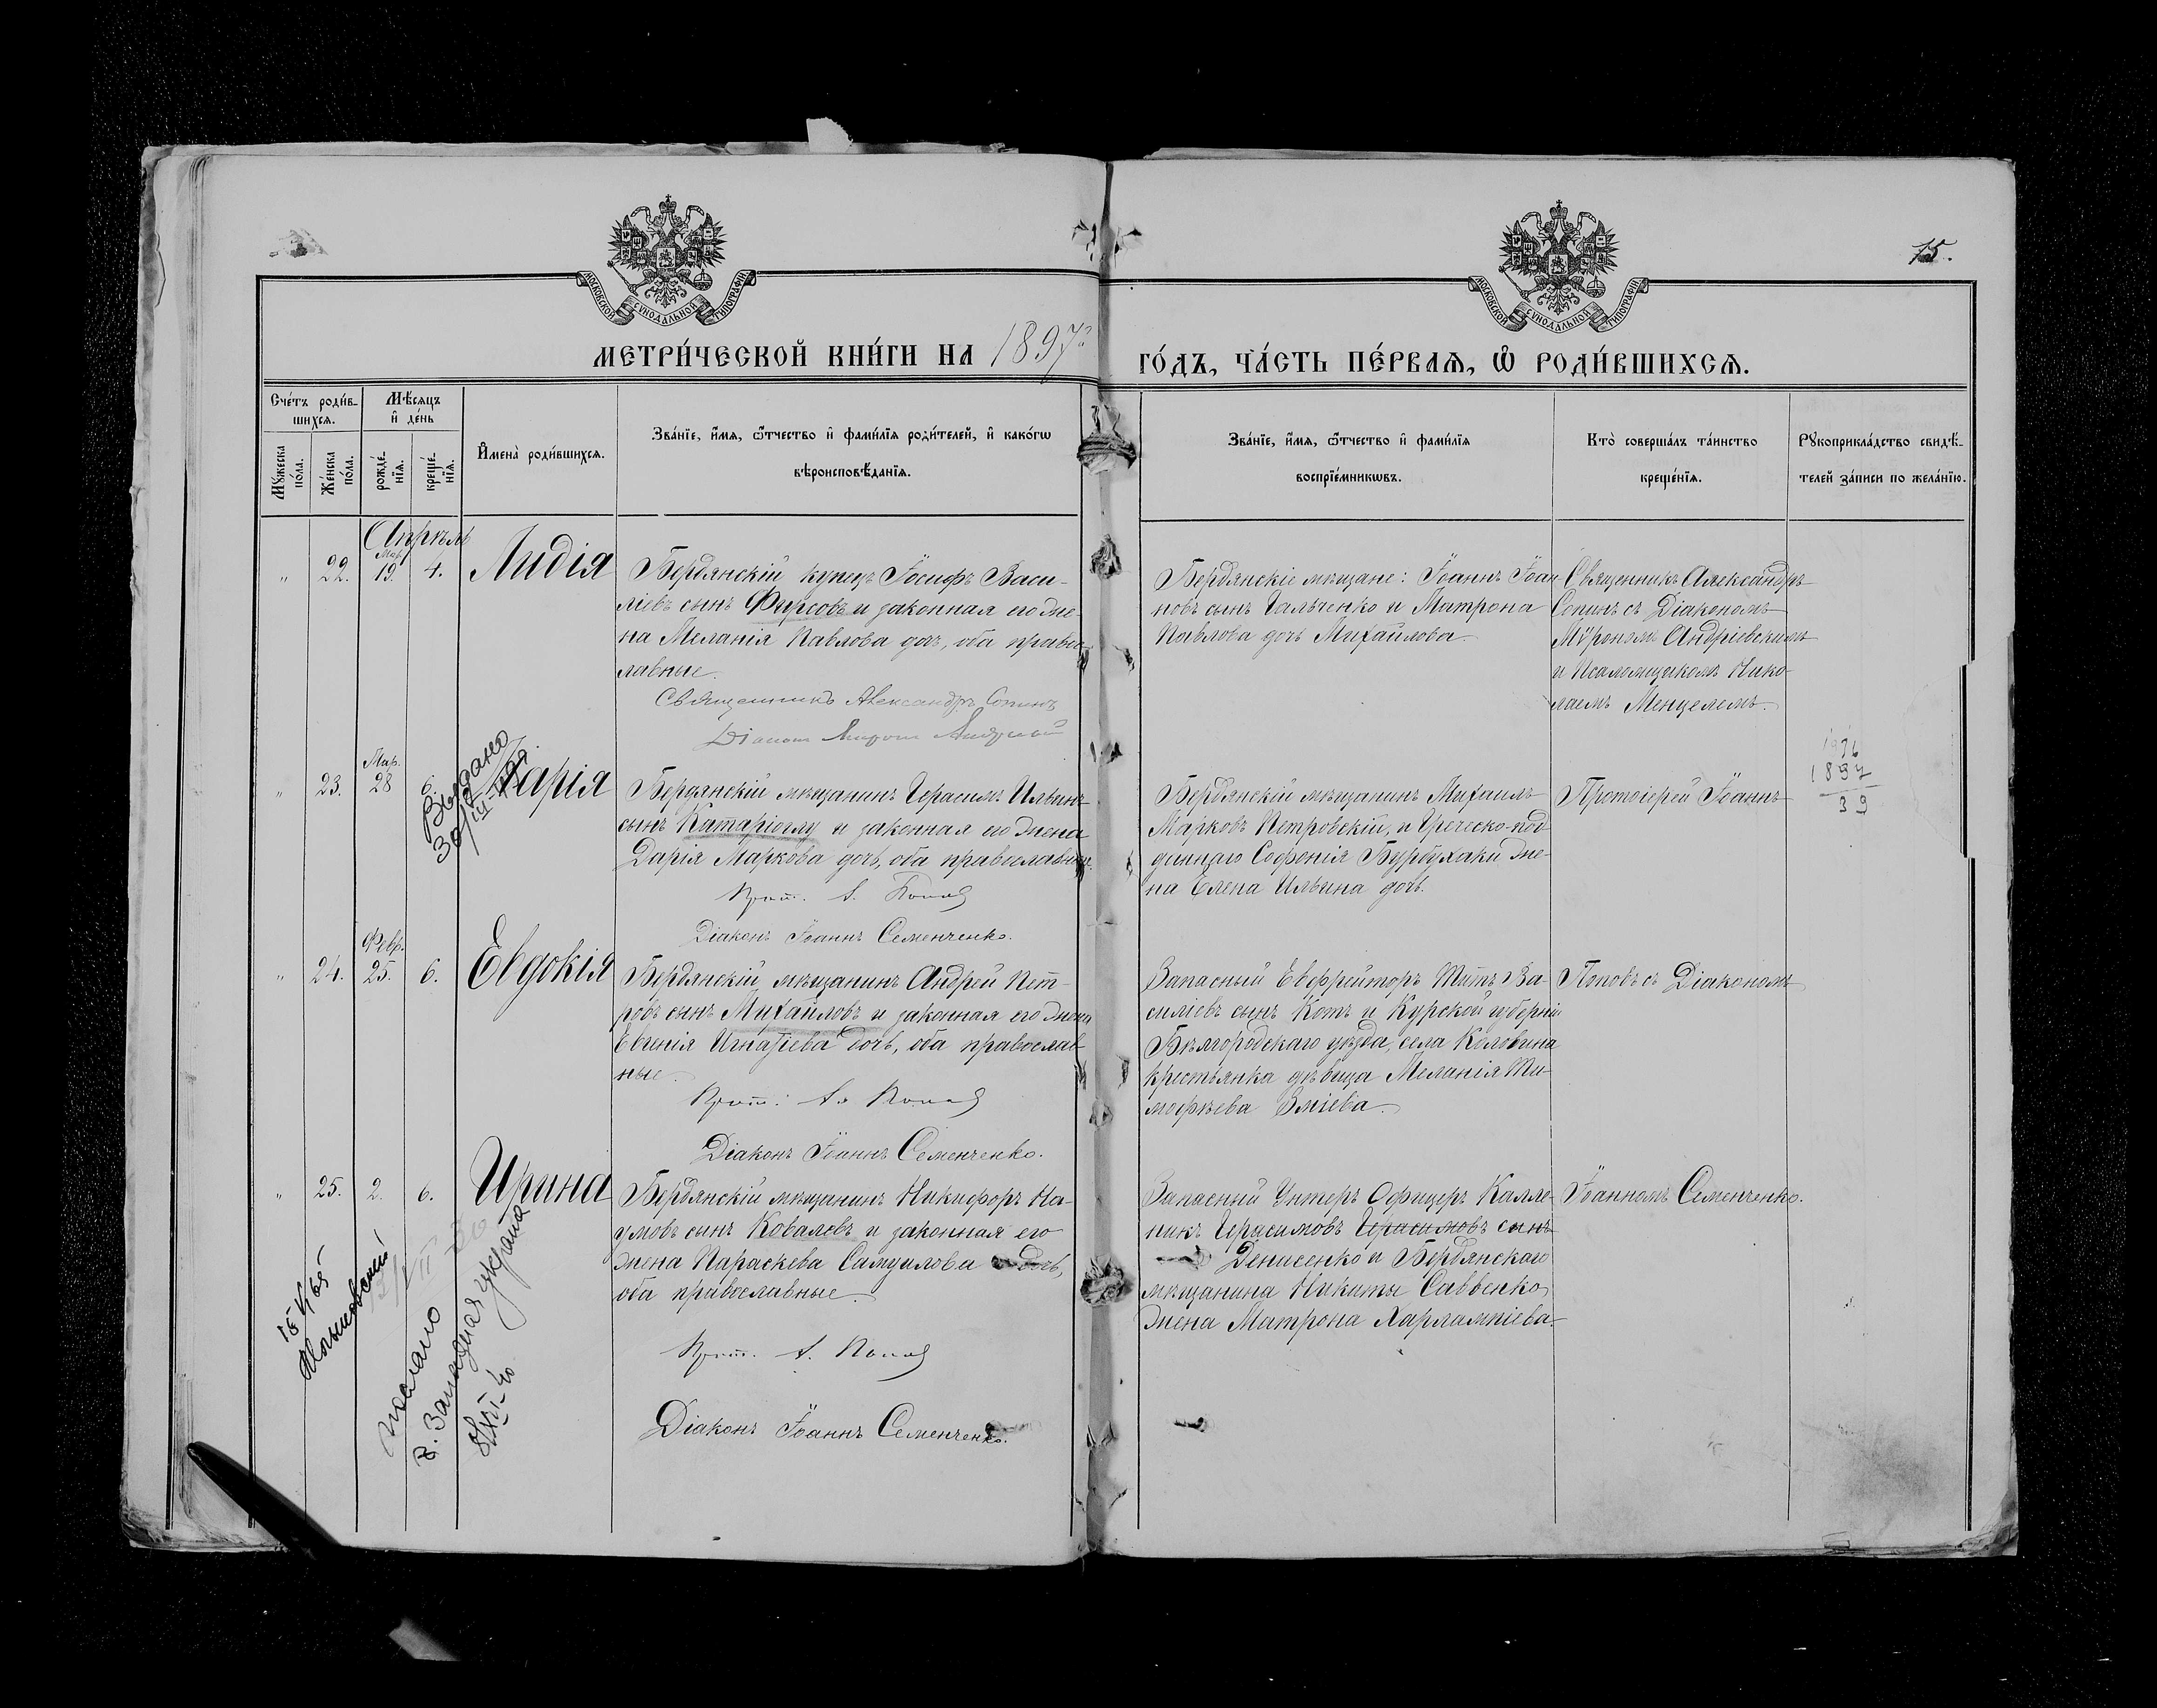 МОСКОВСКОЙ СУНОДАЛЬНОЙ ТИПОГРАФІИ
МОСКОВСКОЙ СУНОДАЛЬНОЙ ТИПОГРАФІИ
15.
МЕТРИ́ЧЕСКОЙ КНИ́ГИ НА 1897
ГО́ДЪ, ЧА́СТЬ ПЕ́РВАѦ, Ѡ҆ РОДИ́ВШИХСѦ.
Сче́тъ роди́в-
шихсѧ.
Мꙋ́жеска по́ла.
Же́нска по́ла.
Мѣ́сѧцъ
и҆ де́нь
рожде́-
нїѧ.
креще́-
нїѧ.
И҆мена̀ роди́вшихсѧ.
Зва́нїе, и҆́мѧ, ѻ҆́тчество и҆ фами́лїѧ роди́телей, и҆ како́гѡ
вѣроисповѣ́данїѧ.
Зва́нїе, и҆́мѧ, ѻ҆́тчество и҆ фами́лїѧ
воспрїе́мникѡвъ.
Кто̀ соверша́лъ та́инство
креще́нїѧ.
Рꙋкоприкла́дство свидѣ́-
телей за́писи по жела́нїю.
Апрѣль
Мар.
" 22. 19. 4. Лидія
Бердянскій купецъ Іосифъ Васи-
ліевъ сынъ Фирсовъ и законная его же-
на Меланія Павлова дочь, оба право-
лавные.
Священникъ Александръ Сопинъ
Діаконъ Миронъ
Бердянскіе мѣщане: Іоаннъ Іоан
новъ сынъ Гальченко и Матрона
Павлова дочь Михайлова.
Священникъ Александръ
Сопинъ съ Діакономъ
Мѵрономъ Андріевскимъ
и Псаломщикомъ Нико-
лаемъ Менцелемъ.
Мар.
" 23. 28 6. Дарія
Выдано
30/III-
Бердянскій мѣщанинъ Герасимъ Ильинъ
сынъ Катаріоглу и законная его жена
Дарія Маркова дочь, оба православные.
Прот. А. Поповъ
Діаконъ Іоаннъ Семенченко.
Бердянскій мѣщанинъ Михаилъ
Марковъ Петровскій, и Греческо-под
даннаго Софонія Бурбухаки же-
на Елена Ильина дочь.
Протоіерей Іоаннъ
1897
39
Февр.
" 24. 25. 6. Евдокія
Бердянскій мѣщанинъ Андрей Пет-
ровъ сынъ Михайловъ и законная его жена
Евгенія Игнатіева дочь, оба православ
ные.
Прот. А. Поповъ
Діаконъ Іоаннъ Семенченко.
Запасный Ефрейторъ Титъ Ва-
силіевъ сынъ Котъ и Курской губерніи
Бѣлгородскаго уѣзда, села Коловина
крестьянка дѣвица Меланія Ти-
мофѣева Зміева.
Поповъ съ Діакономъ
" 25. 2. 6. Ирина
Бердянскій мѣщанинъ Никифоръ На-
умовъ сынъ Ковалевъ и законная его
жена Параскева Самуилова дочь,
оба православные.
Прот. А. Поповъ
Діаконъ Іоаннъ Семенченко.
Запасный Унтеръ Офицеръ Калле-
никъ Герасимовъ Герасимовъ сынъ
Денисенко и Бердянскаго
мѣщанина Никиты Саввенко
жена Матрона Харлампіева.
Іоанномъ Семенченко.
послано
в. Западная украина